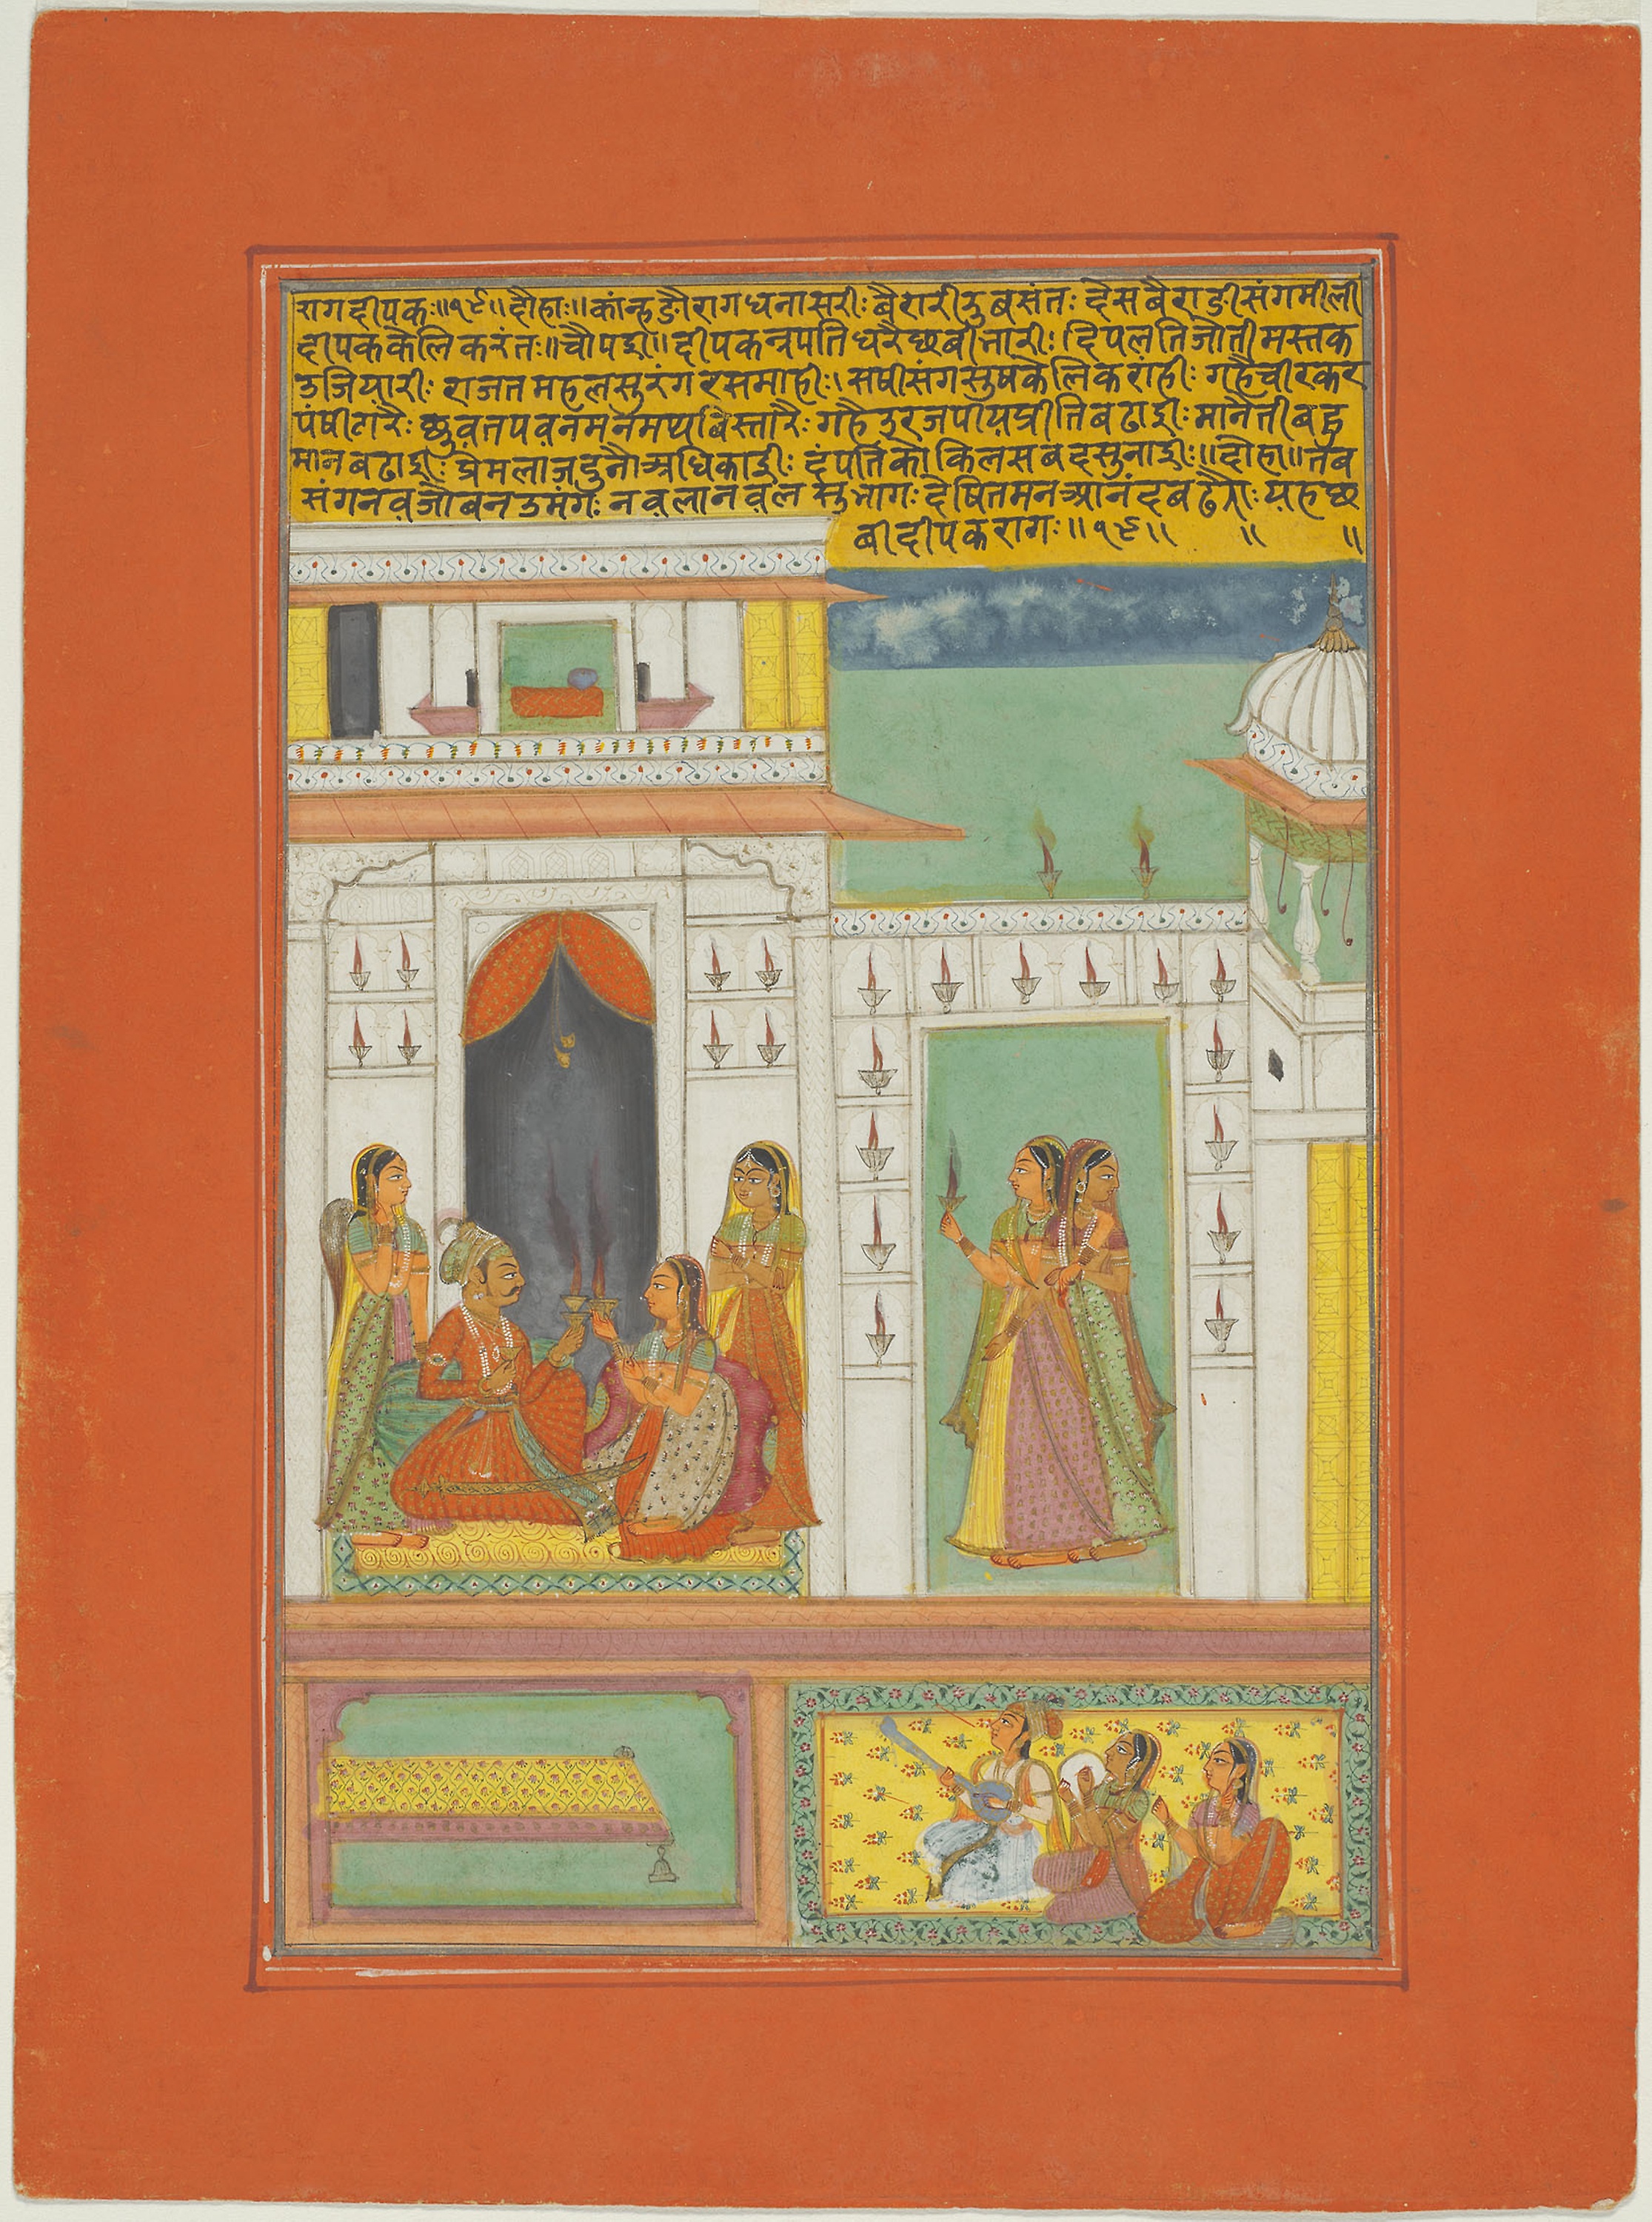 रागदीपकः॥१९॥दौहाः॥कांन्हडौरागधनासरीः बैरारीरुबसंतः दैसबैराडीसंगमीली
दीपककैलिकरंतः॥चौपई॥दीपकन्रपतिधरैछबीभारीः दिपलतिजौतीमस्तक
उजियारीः राजतमहलसुरंगरसमाहीः। सषीसंगसुषकैलिकरांहीः गहैचीरकर
पंषीटारैः छुवतपवनमनमथबिस्तारैः गहैउरजपीयप्रीतिबढाईः मानैतीबहु
मानबढाईः प्रैमलाजदुनौअधिकाईः दंपतिकौकिलसबदसुनाईः॥दौहा॥तब
संगनवजौबनउमंगः नवलानवलसुभागः दैषितमनआनंदबढैः यहछ
बीदीपकरागः॥१९॥ ॥ ॥